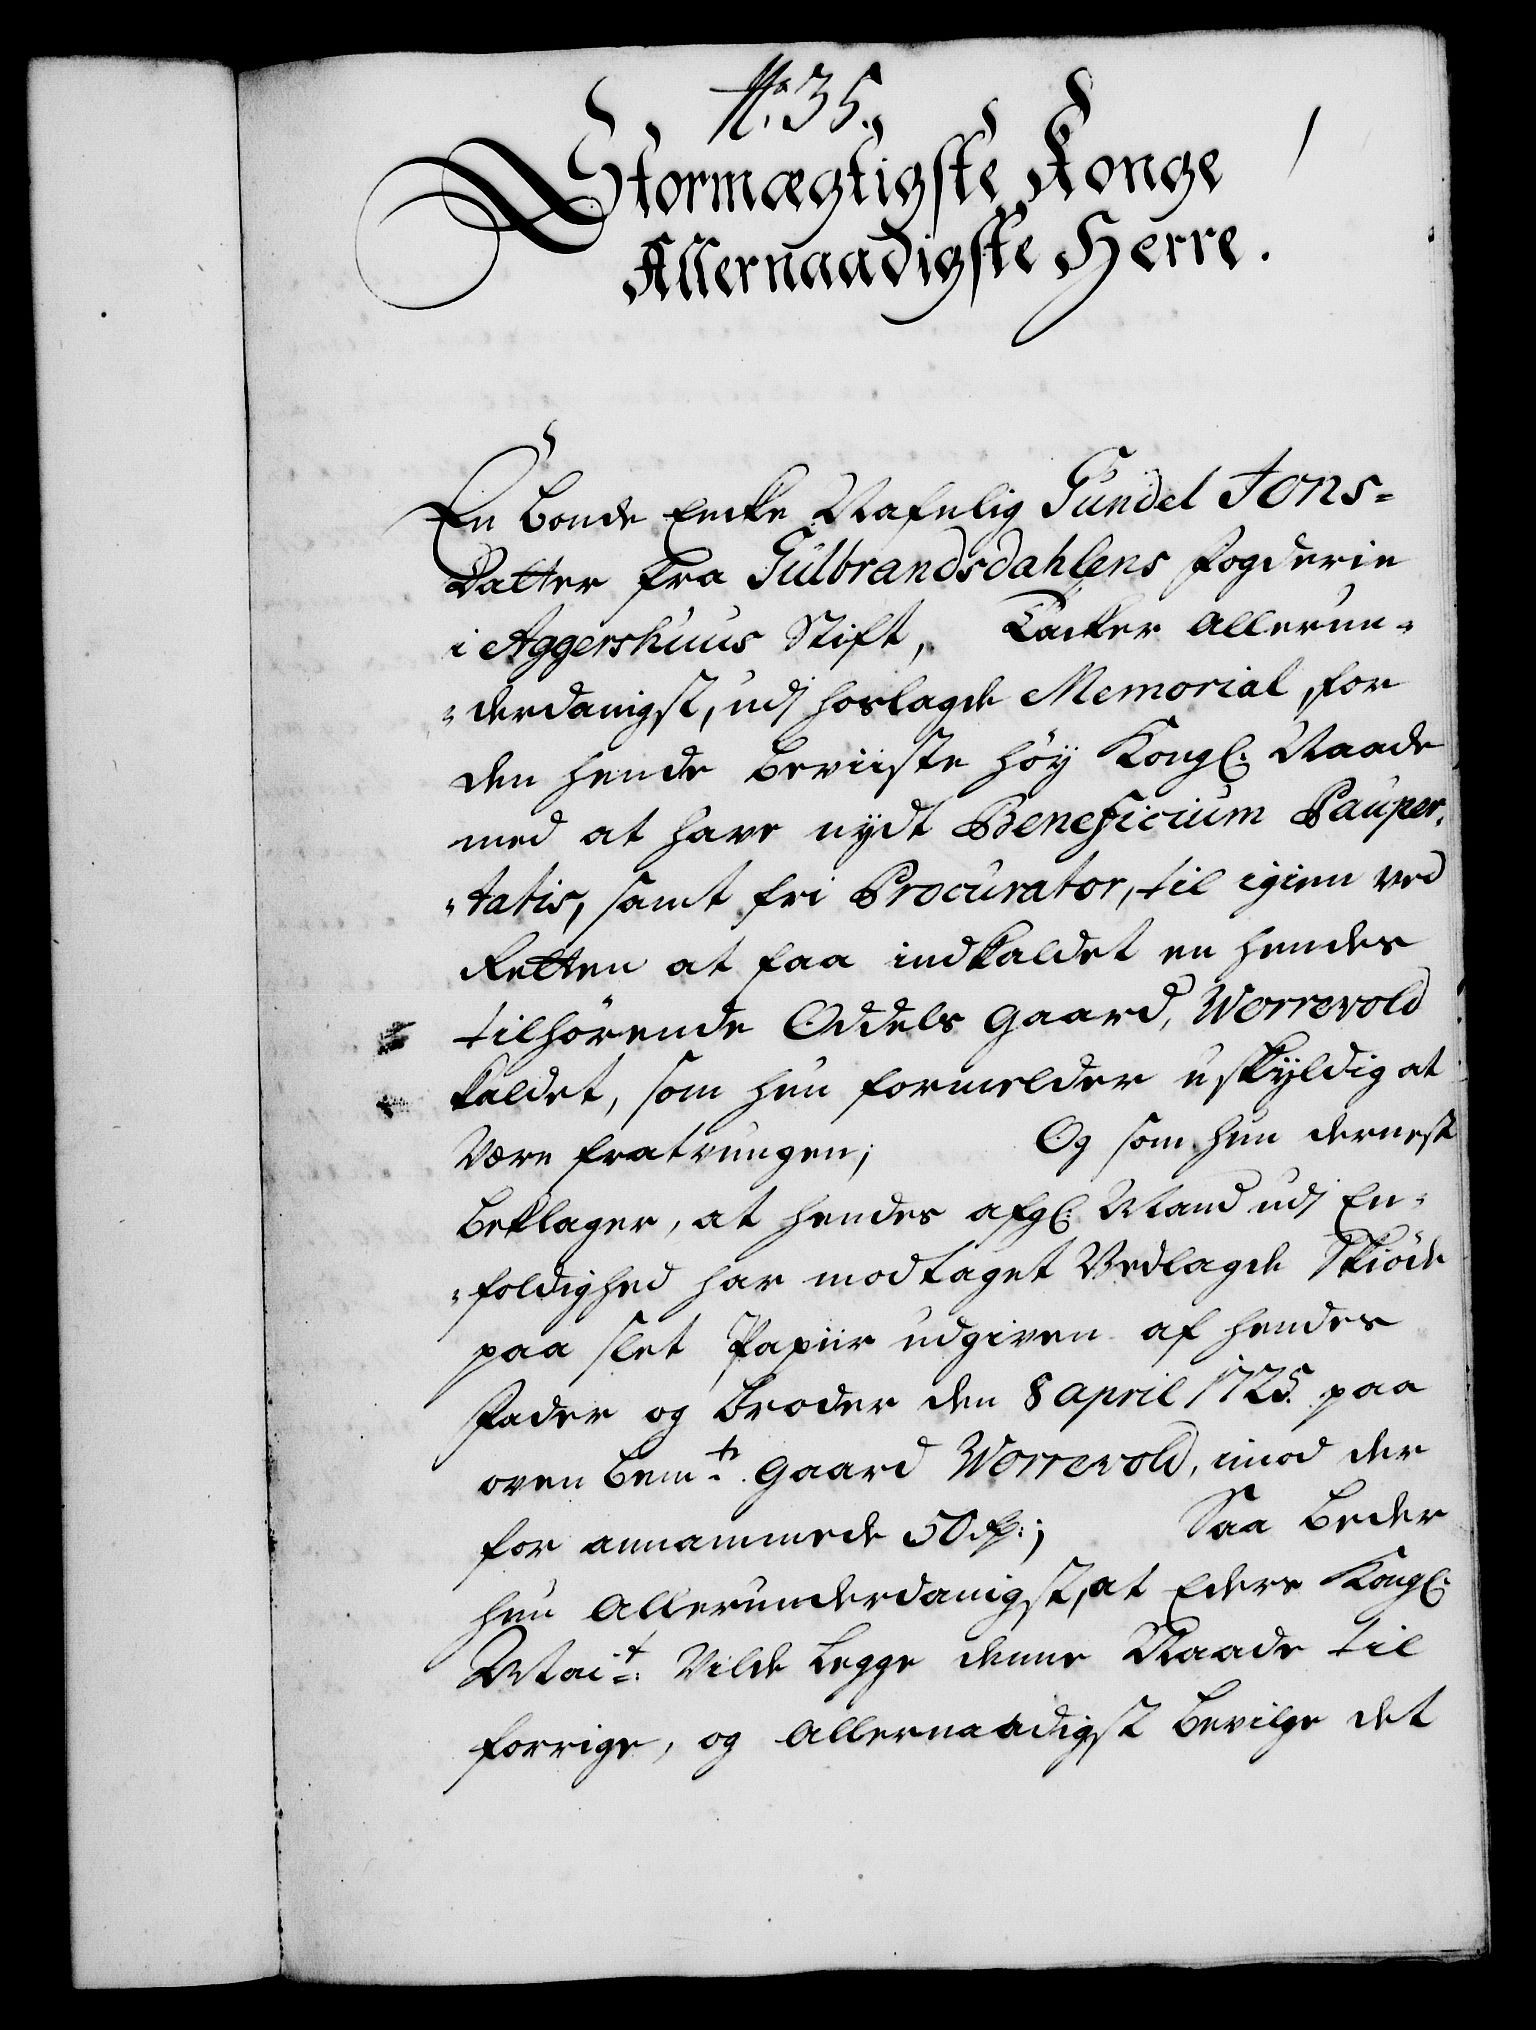 No. 35.
Stormægtigste Konge
Allernaadigste Herre.
En Bonde Encke Nafnlig Gundel Jons-
Datter fra Gulbrandsdahlens fogderie
i Aggershuus Stift, Tacker allerun-
-derdanigst, udj hoslagde Memorial, for
den hende beviiste höy Kongl: Naade
med at have nydt Beneficium Pauper-
-tatis, samt fri Procurator, til igien ved
Retten at faa indkaldet en hendes
tilhörende Oddels Gaard, Worrevold
kaldet, som hun formelder uskyldig at
være fratvungen; Og som hun dernest
beklager, at hendes afgl: Mand udj En-
-foldighed har modtaget Vedlagde Skiöde
paa slet Papiir udgiven af hendes
Fader og Broder den 8 april 1725 paa
oven bemte. Gaard Worrevold, imod der
for annammede 50 rdr:; Saa beder
hun allerunderdanigst, at Eders Kongl:
Mait: Vilde legge denne Naade til
forrige, og allernaadigst bevilge det